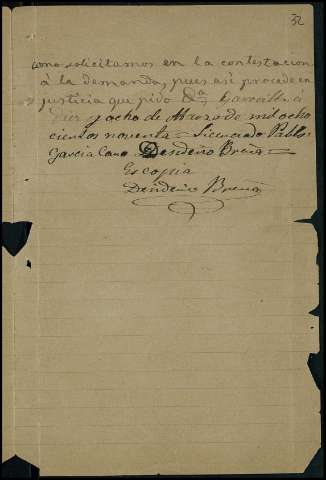 32
como solicitamos en la contestacion
á la demanda, pues así procede en
justicia que pido &ª Garcilla á
diez y ocho de Marzo de mil ocho
cientos noventa = Licenciado Pablo
Garcia Cano = Desiderio Brena =
Es copia
Desiderio Brena